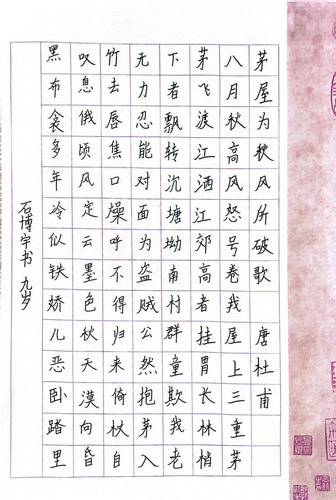 茅屋为秋风所破歌 唐杜甫
八月秋高风怒号卷我屋上三重茅
茅飞渡江洒江郊高者挂胃长林梢
下者飘转沉塘坳南村群童欺我老
无力忍能对面为盗贼公然抱茅入
竹去唇焦口燥呼不得归来倚杖自
叹息俄顷风定云墨色秋天漠向昏
黑布衾多年冷似铁娇儿恶卧踏里
石博宇书 九岁